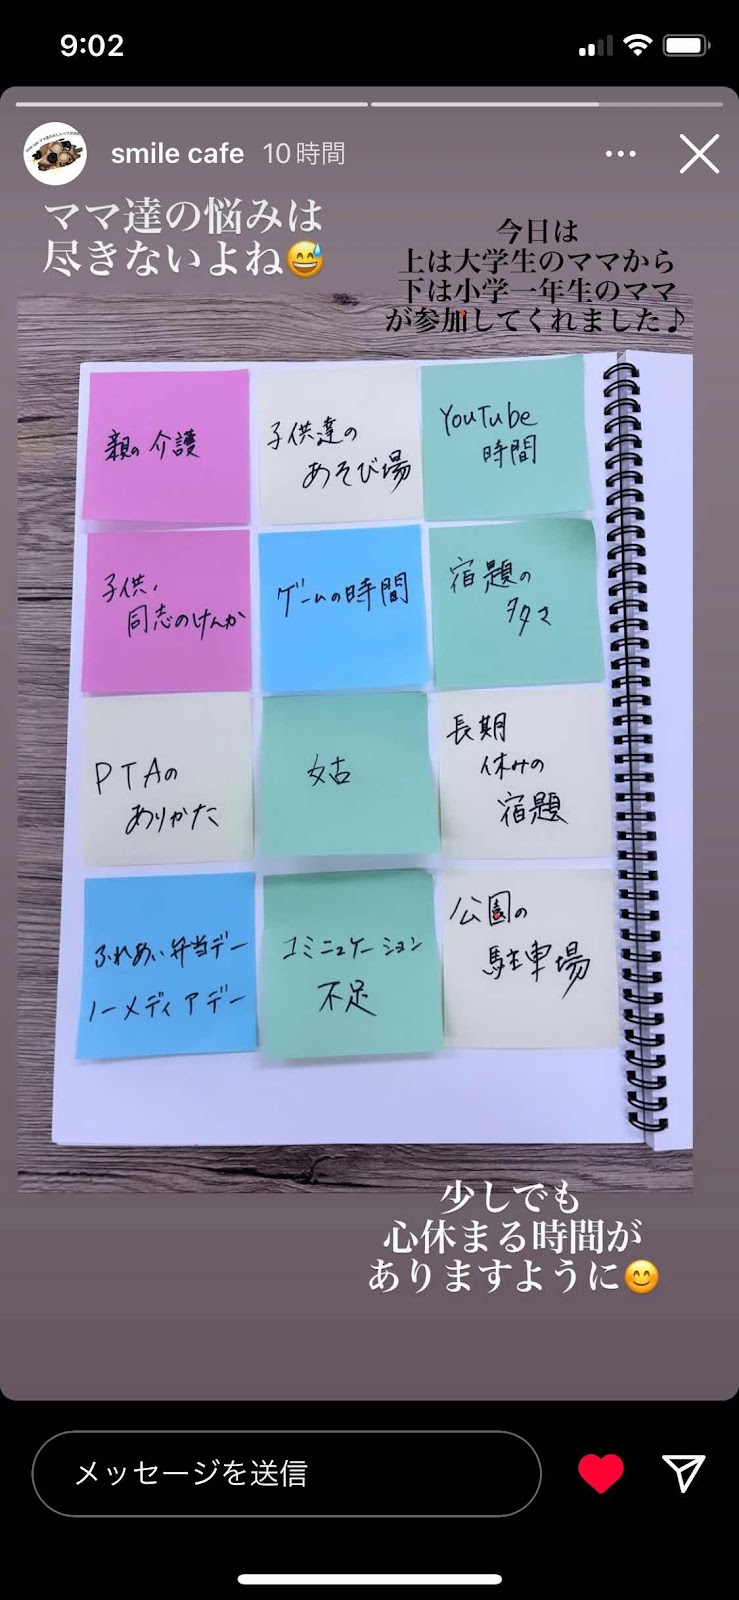 9:02
smile cafe 10時間
ママ達の悩みは
尽きないよね😅
今日は
上は大学生のママから
下は小学一年生のママ
が参加してくれました♪
親の介護
子供達の
あそび場
YouTube
時間
子供、
同志のけんか
ゲームの時間
宿題の
多さ
PTAの
ありかた
姑
長期
休みの
宿題
ふれあい弁当デー
ノーメディアデー
コミニュケーション
不足
公園の
駐車場
少しでも
心休まる時間が
ありますように😊
メッセージを送信